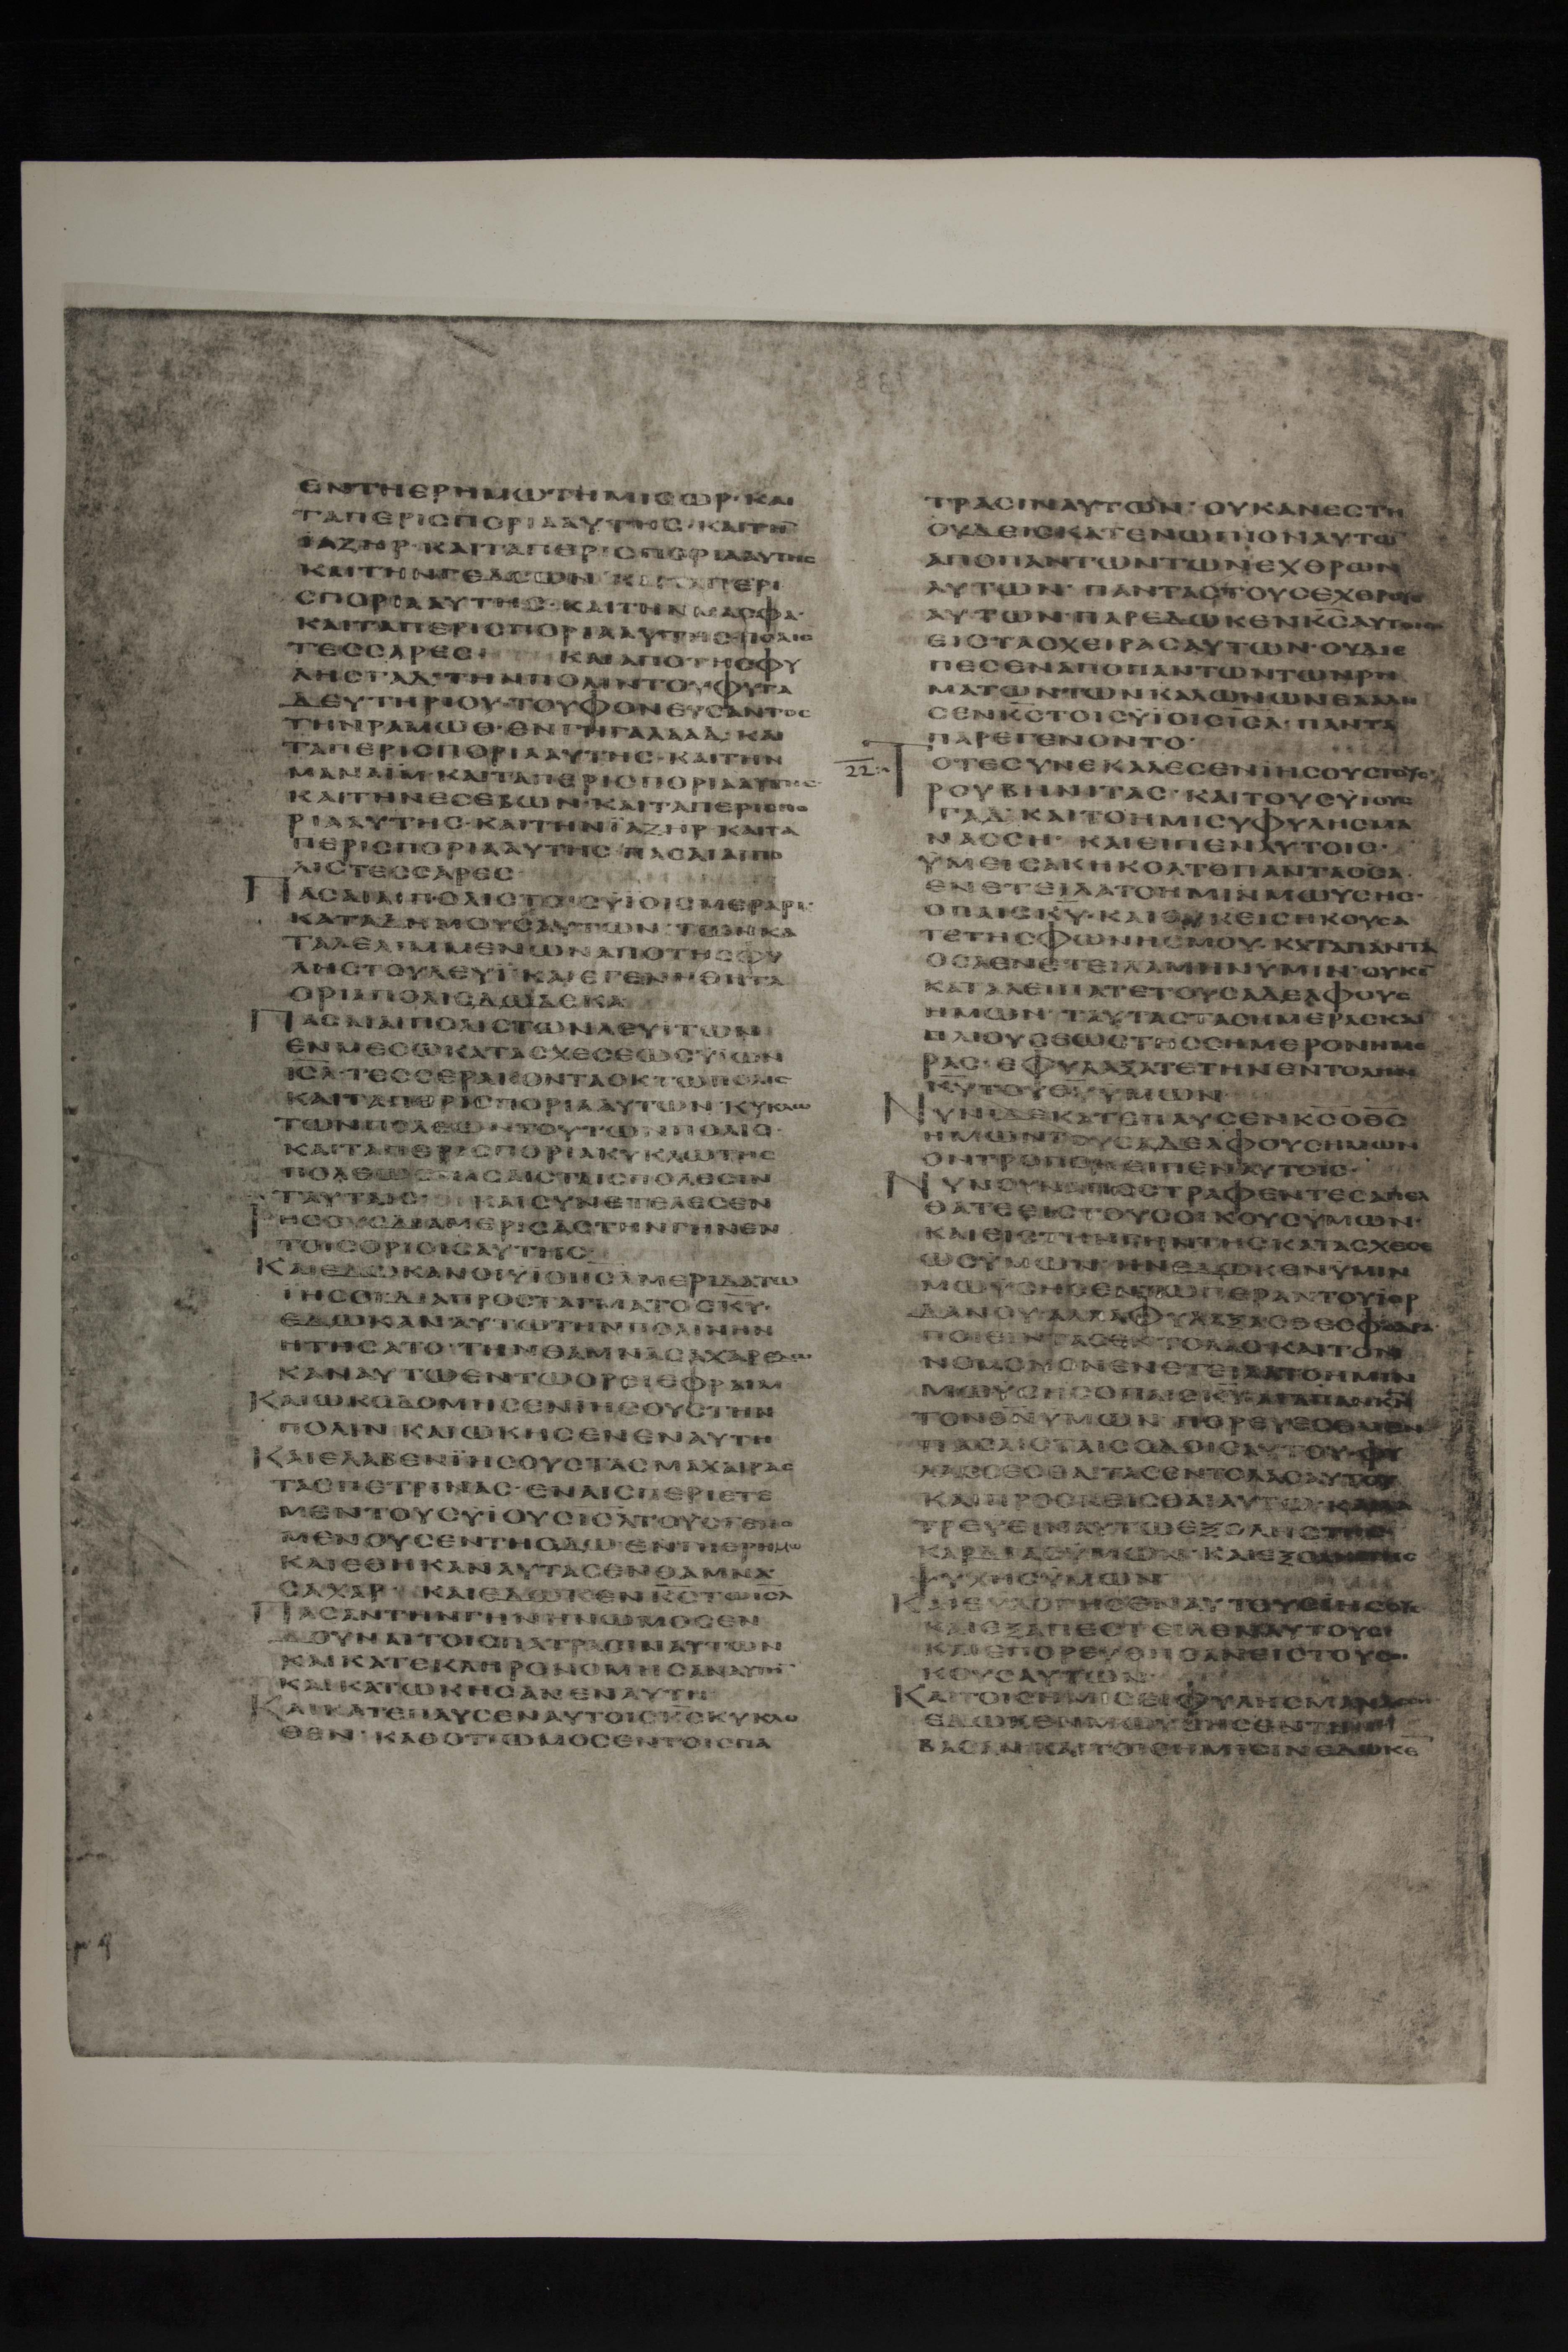 ΕΝΤΗΕΡΗΜΩΤΗΜΙCΩΡ·ΚΑΙ
ΤΑΠΕΡΙCΠΟΡΙΑΑΥΤΗC·ΚΑΙΤΗ
ΙΑΖΗΡ·ΚΑΙΤΑΠΕΡΙCΠΟΡΙΑΑΥΤΗC
ΚΑΙΤΗΝ ΚΑΙΤΑΠΕΡΙ
CΠΟΡΙΑΑΥΤΗC·ΚΑΙΤΗΝΜΑCΦΑ·
ΚΑΙΤΑΠΕΡΙCΠΟΡΙΑΑΥΤΗC·ΠΟΛΙC
ΤΕCCΑΡΕC· ΚΑΙΑΠΟΤΗCΦΥ
ΛΗCΓΑΔ·ΤΗΝΠΟΛΙΝΤΟΥΦΥΓΑ
ΔΕΥΤΗΡΙΟΥ·ΤΟΥΦΟΝΕΥCΑΝΤΟC
ΤΗΝΡΑΜΩΘ·ΕΝΤΗΓΑΛΑΑΔ·ΚΑΙ
ΤΑΠΕΡΙCΠΟΡΙΑΑΥΤΗC·ΚΑΙΤΗΝ
ΜΑΝΑΪΜ·ΚΑΙΤΑΠΕΡΙCΠΟΡΙΑΑΥΤΗC·
ΚΑΙΤΗΝΕCΕΒΩΝ·ΚΑΙΤΑΠΕΡΙCΠΟ
ΡΙΑΑΥΤΗC·ΚΑΙΤΗΝΪΑΖΗΡ·ΚΑΙΤΑ
ΠΕΡΙCΠΟΡΙΑΑΥΤΗC·ΠΑCΑΙΑΙΠΟ
ΛΙCΤΕCCΑΡΕC·
ΠΑCΑΙΑΙΠΟΛΙCΤΟΙCΫΪΟΙCΜΕΡΑΡΙ·
ΚΑΤΑΔΗΜΟΥCΑΥΤΩΝ·ΤΩΝΚΑ
ΤΑΛΕΛΙΜΜΕΝΩΝΑΠΟΤΗCΦΥ
ΛΗCΤΟΥΛΕΥΪ·ΚΑΙΕΓΕΝΗΘΗΤΑ
ΟΡΙΑΠΟΛΙCΔΩΔΕΚΑ
ΠΑCΑΙΑΙΠΟΛΙCΤΩΝΛΕΥΙΤΩΝ
ΕΝΜΕCΩΚΑΤΑCΧΕCΕΩCΫΪΩΝ
ΙCΛ·ΤΕCCΕΡΑΚΟΝΤΑΟΚΤΩΠΟΛΙC
ΚΑΙΤΑΠΕΡΙCΠΟΡΙΑΑΥΤΩΝΚΥΚΛΩ
ΤΩΝΠΟΛΕΩΝΤΟΥΤΩΝΠΟΛΙC·
ΚΑΙΤΑΠΕΡΙCΠΟΡΙΑΚΥΚΛΩΤΗC
ΠΟΛΕΩC·ΠΑCΑΙCΤΑΙCΠΟΛΕCΙΝ
ΤΑΥΤΑΙC· ΚΑΙCΥΝΕΤΕΛΕCΕΝ
ΙΗCΟΥCΔΙΑΜΕΡΙCΑCΤΗΝΓΗΝΕΝ
ΤΟΙCΟΡΙΟΙCΑΥΤΗC
ΚΑΙΕΔΩΚΑΝΟΙΫΪΟΙΙCΛΜΕΡΙΔΑΤΩ
ΙΗCΟΙΔΙΑΠΡΟCΤΑΓΜΑΤΟCΚΥ·
ΕΔΩΚΑΝΑΥΤΩΤΗΝΠΟΛΙΝΗΝ
ΗΤΗCΑΤΟ·ΤΗΝΘΑΜΝΑCΑΧΑΡΕΔΩ
ΚΑΝΑΥΤΩΕΝΤΩΟΡΕΙΕΦΡΑΙΜ
ΚΑΙΩΚΟΔΟΜΗCΕΝΙΗCΟΥCΤΗΝ
ΠΟΛΙΝ ΚΑΙΩΚΗCΕΝΕΝΑΥΤΗ
ΚΑΙΕΛΑΒΕΝΪΗCΟΥCΤΑCΜΑΧΑΙΡΑC
ΤΑCΠΕΤΡΙΝΑC·ΕΝΑΙCΠΕΡΙΕΤΕ
ΜΕΝΤΟΥCΫΪΟΥCΙCΛΤΟΥCΓΕΝΟ
ΜΕΝΟΥCΕΝΤΗΟΔΩΕΝΤΗΕΡΗΜΩ
ΚΑΙΕΘΗΚΑΝΑΥΤΑCΕΝΘΑΜΝΑ
CΑΧΑΡ· ΚΑΙΕΔΩΚΕΝΚCΤΩΙCΛ
ΠΑCΑΝΤΗΝΓΗΝΗΝΩΜΟCΕΝ
ΔΟΥΝΑΙΤΟΙCΠΑΤΡΑCΙΝΑΥΤΩΝ
ΚΑΙΚΑΤΕΚΛΗΡΟΝΟΜΗCΑΝΑΥΤΗ
ΚΑΙΚΑΤΩΚΗCΑΝΕΝΑΥΤΗ
ΚΑΙΚΑΤΕΠΑΥCΕΝΑΥΤΟΙCΚCΚΥΚΛΟ
ΘΕΝ·ΚΑΘΟΤΙΩΜΟCΕΝΤΟΙCΠΑ
ΤΡΑCΙΝΑΥΤΩΝ·ΟΥΚΑΝΕCΤΗ
ΟΥΔΕΙCΚΑΤΕΝΩΠΙΟΝΑΥΤΩ
ΑΠΟΠΑΝΤΩΝΤΩΝΕΧΘΡΩΝ
ΑΥΤΩΝ·ΠΑΝΤΑCΤΟΥCΕΧΘΡΟΥC
ΑΥΤΩΝΠΑΡΕΔΩΚΕΝΚCΑΥΤΟΙC
ΕΙCΤΑCΧΕΙΡΑCΑΥΤΩΝ·ΟΥΔΙΕ
ΠΕCΕΝΑΠΟΠΑΝΤΩΝΤΩΝΡΗ
ΜΑΤΩΝΤΩΝΚΑΛΩΝΩΝΕΛΑΛΗ
CΕΝΚCΤΟΙCΫΪΟΙCΙCΛ·ΠΑΝΤΑ
ΠΑΡΕΓΕΝΟΝΤΟ·
22 ΤΟΤΕCΥΝΕΚΑΛΕCΕΝΪΗCΟΥCΤΟΥC
ΡΟΥΒΗΝΙΤΑC·ΚΑΙΤΟΥCΫΙΟΥC
ΓΑΔ·ΚΑΙΤΟΗΜΙCΥΦΥΛΗCΜΑ
ΝΑCCΗ· ΚΑΙΕΙΠΕΝΑΥΤΟΙC·
ΫΜΕΙCΑΚΗΚΟΑΤΕΠΑΝΤΑΟCΑ·
ΕΝΕΤΕΙΛΑΤΟΗΜΙΝΜΩΥCΗC·
ΟΠΑΙCΚΥ·ΚΑΙ ΕΙCΗΚΟΥCΑ
ΤΕΤΗCΦΩΝΗCΜΟΥ·ΚΑΤΑΠΑΝΤΑ
ΟCΑΕΝΕΤΕΙΛΑΜΗΝΥΜΙΝ·ΟΥΚΕ
ΚΑΤΑΛΕΙΠΑΤΕΤΟΥCΑΔΕΛΦΟΥC
ΗΜΩΝ·ΤΑΥΤΑCΤΑCΗΜΕΡΑCΚΑΙ
ΠΛΙΟΥCΕΩCΤΗCCΗΜΕΡΟΝΗΜΕ
ΡΑC·ΕΦΥΛΑΞΑΤΕΤΗΝΕΝΤΟΛΗΝ
ΚΥΤΟΥΘΥΫΜΩΝ
ΝΥΝΙΔΕΚΑΤΕΠΑΥCΕΝΚCΟΘC
ΗΜΩΝΤΟΥCΑΔΕΛΦΟΥCΗΜΩΝ
ΟΝΤΡΟΠΟΝΕΙΠΕΝΑΥΤΟΙC·
ΝΥΝΟΥΝΑΠΟCΤΡΑΦΕΝΤΕCΑΠΕΛ
ΘΑΤΕΕΙCΤΟΥCΟΙΚΟΥCΫΜΩΝ·
ΚΑΙΕΙCΤΗΝΓΗΝΤΗCΚΑΤΑCΧΕCΕ
ΩCΫΜΩΝ·ΗΝΕΔΩΚΕΝΥΜΙΝ
ΜΩΥCΗCΕΝΤΩΠΕΡΑΝΤΟΥΪΟΡ
ΔΑΝΟΥ·ΑΛΛΑΦΥΛΑΞΑCΘΕCΦΟΔΡΑ·
ΠΟΙΕΙΝΤΑCΕΝΤΟΛΑCΚΑΙΤΟΝ
ΝΟΜΟΝΟΝΕΝΕΤΕΙΛΑΤΟΗΜΙΝ
ΜΩΥCΗCΟΠΑΙCΚΥ·ΑΓΑΠΑΝΚΝ
ΤΟΝΘΝΥΜΩΝ ΠΟΡΕΥΕCΘΑΙΕΝ
ΠΑCΑΙCΤΑΙCΟΔΟΙCΑΥΤΟΥ·ΦΥ
ΛΑCCΕCΘΑΙΤΑCΕΝΤΟΛΑCΑΥΤΟΥ
ΚΑΙΠΡΟCΚΕΙCΘΑΙΑΥΤΩ·ΚΑΙΛΑ
ΤΡΕΥΕΙΝΑΥΤΩΕΞΟΛΗCΤΗC
ΚΑΡΔΙΑCΫΜΩΝ·ΚΑΙΕΞΟΛΗCΤΗC
ΨΥΧΗCΫΜΩΝ
ΚΑΙΕΥΛΟΓΗCΕΝΑΥΤΟΥCΙΗCΟΥC
ΚΑΙΕΞΑΠΕCΤΕΙΛΕΝΑΥΤΟΥC
ΚΑΙΕΠΟΡΕΥΘΗCΑΝΕΙCΤΟΥCΟΙ
ΚΟΥCΑΥΤΩΝ
ΚΑΙΤΟΙCΗΜΙCΕΙΦΥΛΗCΜΑΝΑCCΗ
ΕΔΩΚΕΝΜΩΥCΗCΕΝΤΗ
ΒΑCΑΝ·ΚΑΙΤΟΙCΗΜΙCΙΝΕΔΩΚΕ